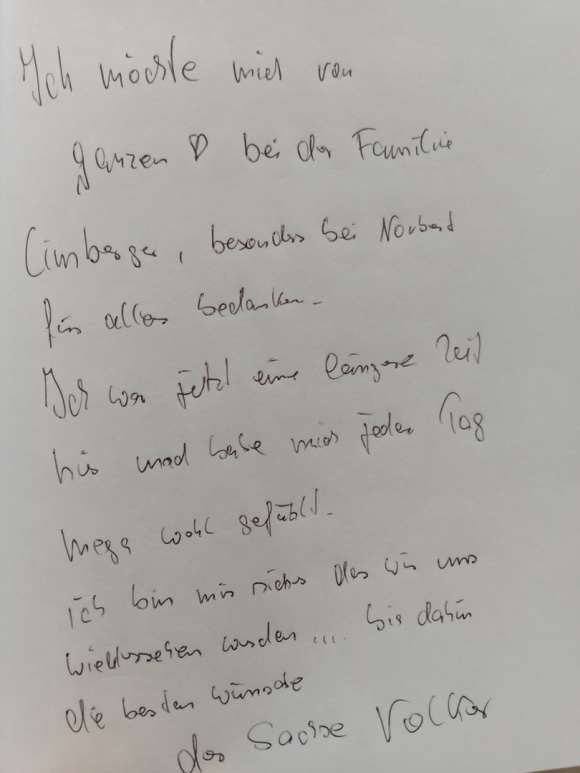 Ich möchte mich von
ganzen ♡ bei der Familie
Limberger, besonders bei Norbert
für alles bedanken.
Ich war jetzt eine längere Zeit
hier und habe mich jeden Tag
mega wohl gefühlt.
ich bin mir sicher das wir uns
wiedersehen werden .... bis dahin
die besten wünsche
der Sachse Volker